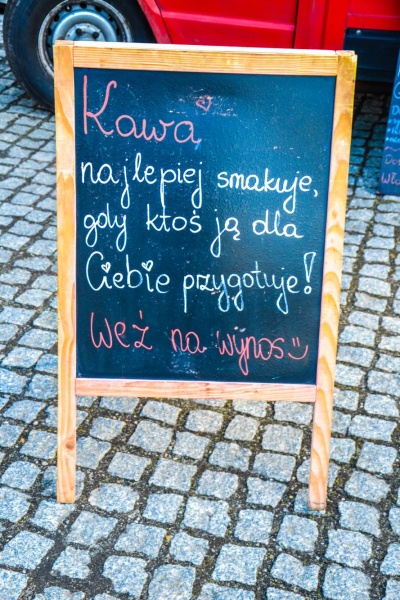 Kawa,
najlepiej smakuje,
gdy ktoś ją dla
Ciebie przygotuje!
Weź na wynos